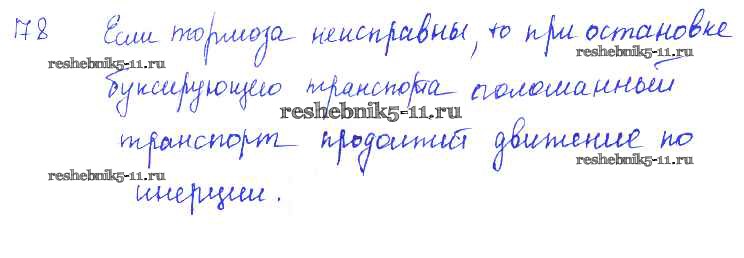 178 Если тормоза неисправны, то при остановке
reshebnik5-11.ru reshebnik5-11.ru
буксирующего транспорта поломанный
reshebnik5-11.ru
транспорт продолжит движение по
reshebnik5-11.ru reshebnik5-11.ru
инерции.